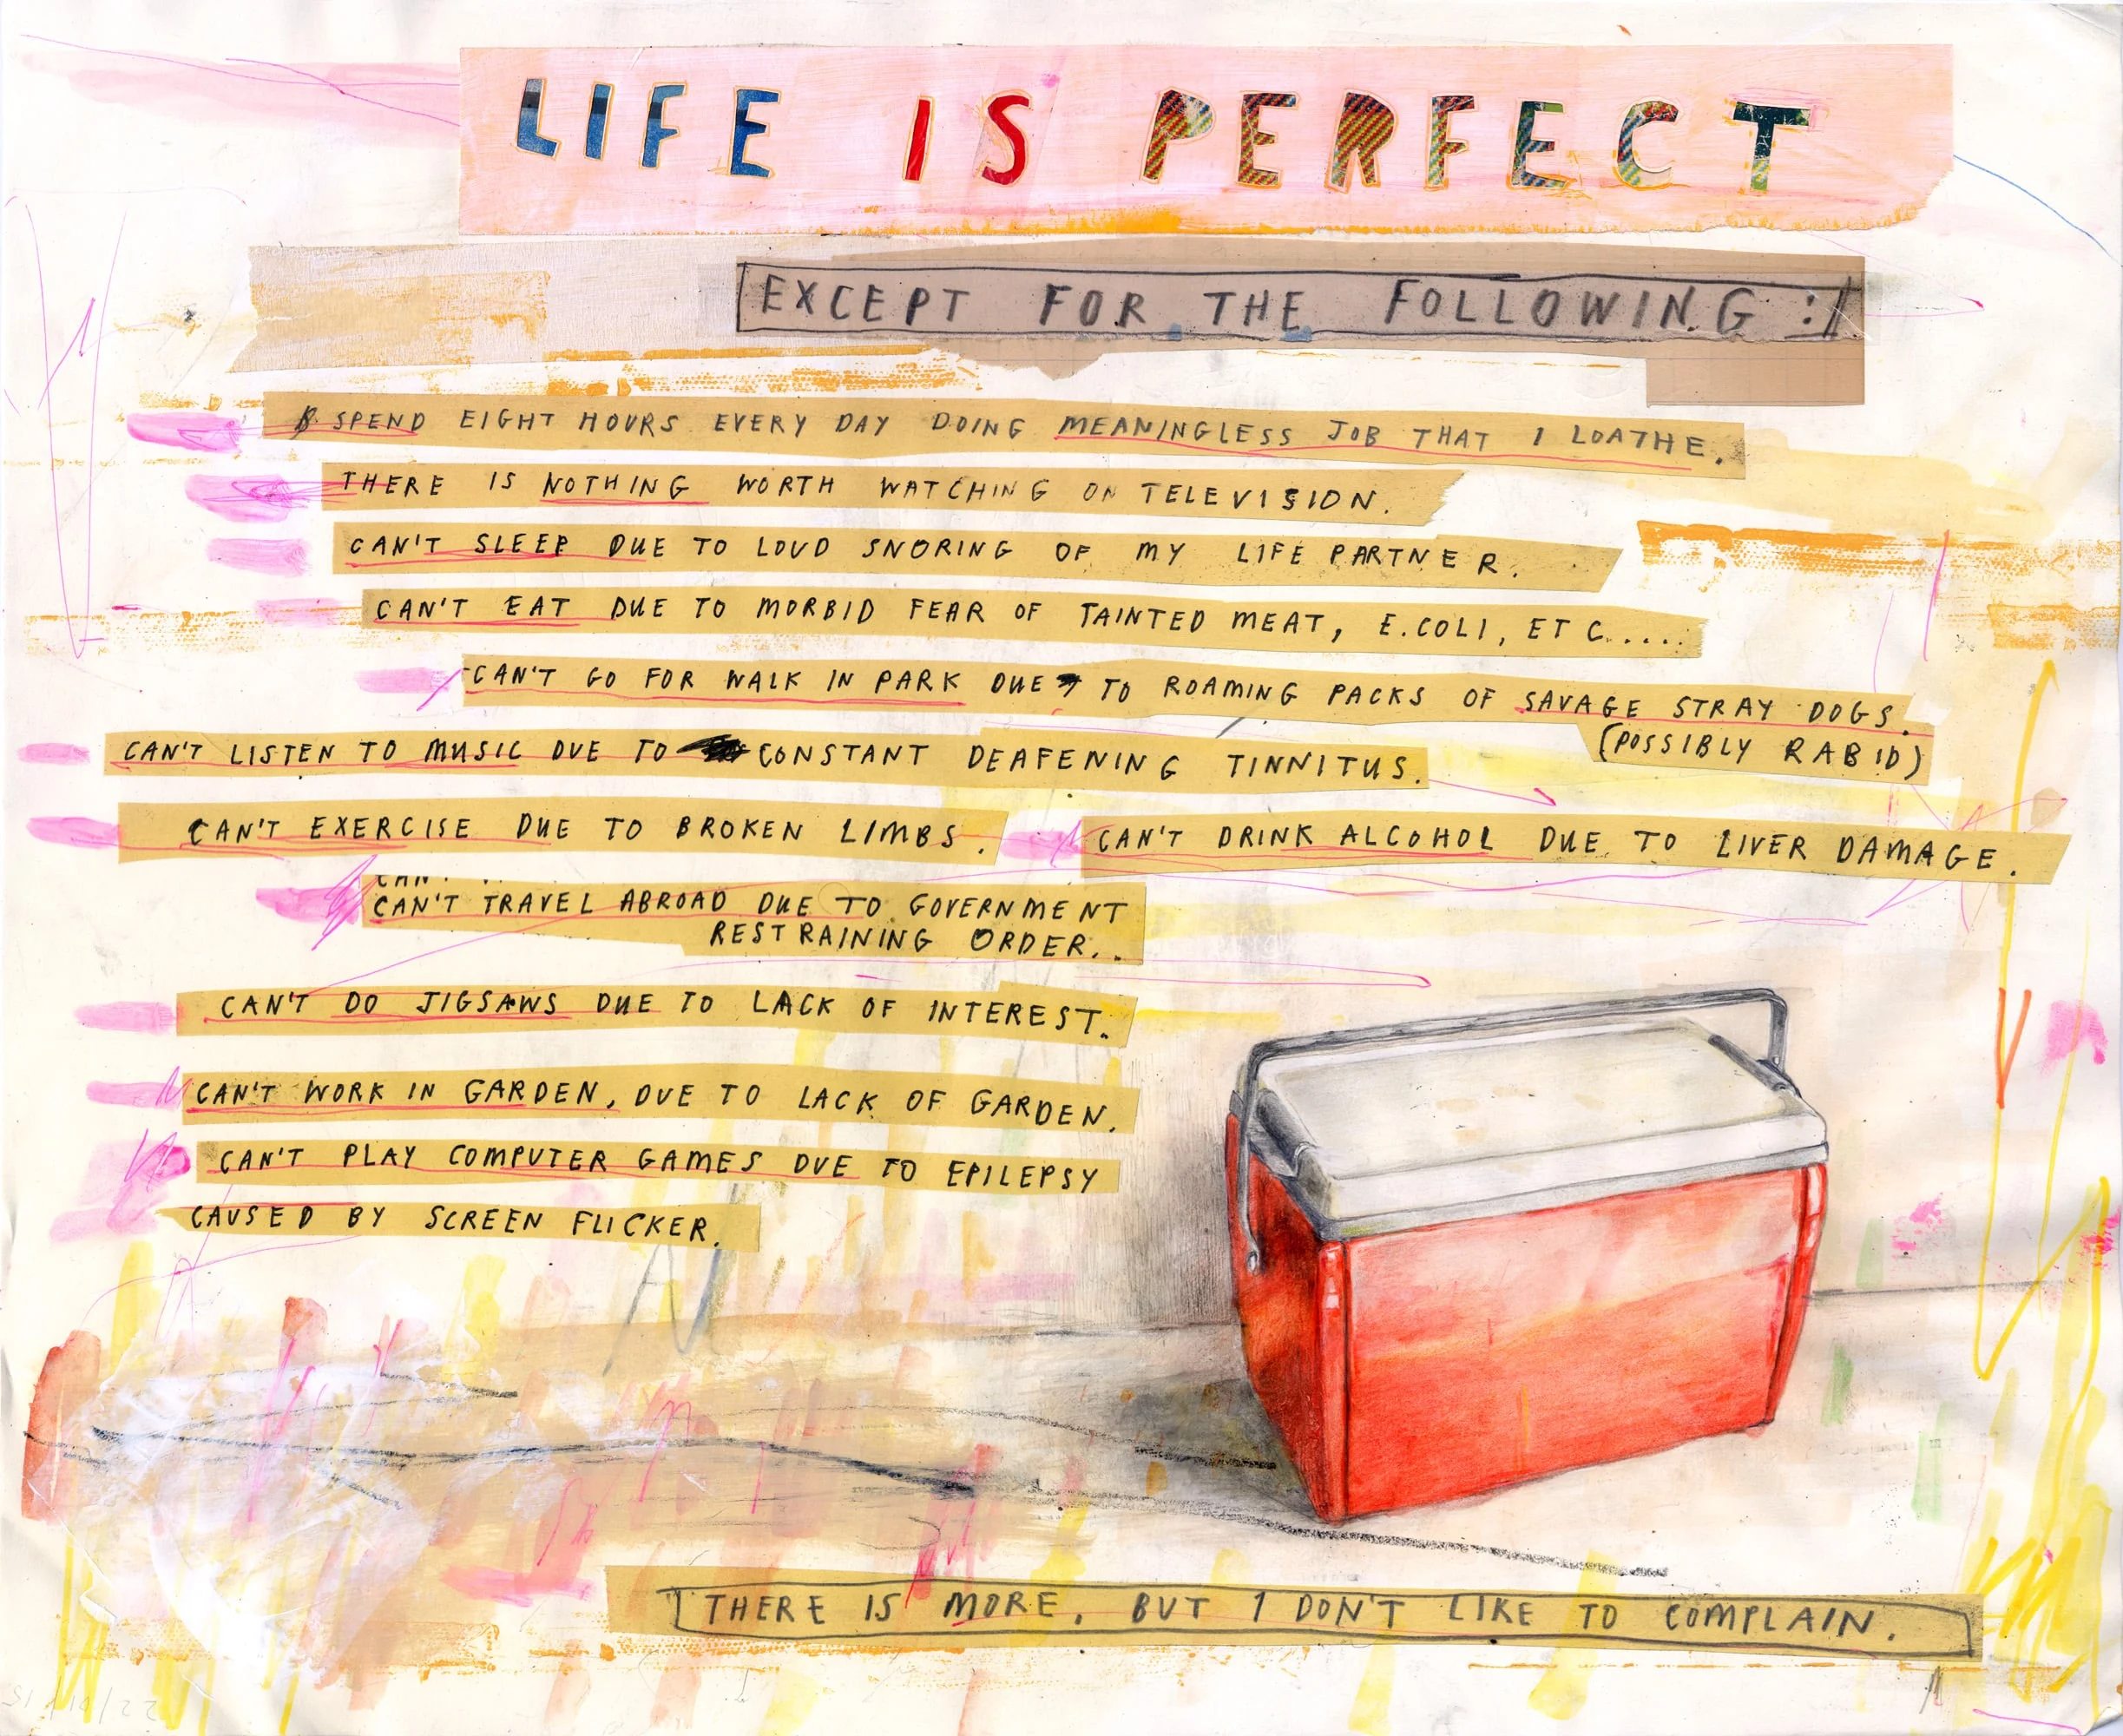 LIFE IS PERFECT
EXCEPT FOR THE FOLLOWING :
SPEND EIGHT HOURS EVERY DAY DOING MEANINGLESS JOB THAT I LOATHE.
THERE IS NOTHING WORTH WATCHING ON TELEVISION.
CAN'T SLEEP DUE TO LOUD SNORING OF MY LIFE PARTNER.
CAN'T EAT DUE TO MORBID FEAR OF TAINTED MEAT, E.COLI, ETC.....
CAN'T GO FOR WALK IN PARK DUE TO ROAMING PACKS OF SAVAGE STRAY DOGS.
(POSSIBLY RABID)
CAN'T LISTEN TO MUSIC DUE TO CONSTANT DEAFENING TINNITUS.
CAN'T EXERCISE DUE TO BROKEN LIMBS.
CAN'T DRINK ALCOHOL DUE TO LIVER DAMAGE.
CAN'T TRAVEL ABROAD DUE TO GOVERNMENT
RESTRAINING ORDER..
CAN'T DO JIGSAWS DUE TO LACK OF INTEREST.
CAN'T WORK IN GARDEN, DUE TO LACK OF GARDEN.
CAN'T PLAY COMPUTER GAMES DUE TO EPILEPSY
CAUSED BY SCREEN FLICKER.
THERE IS MORE. BUT I DON'T LIKE TO COMPLAIN.